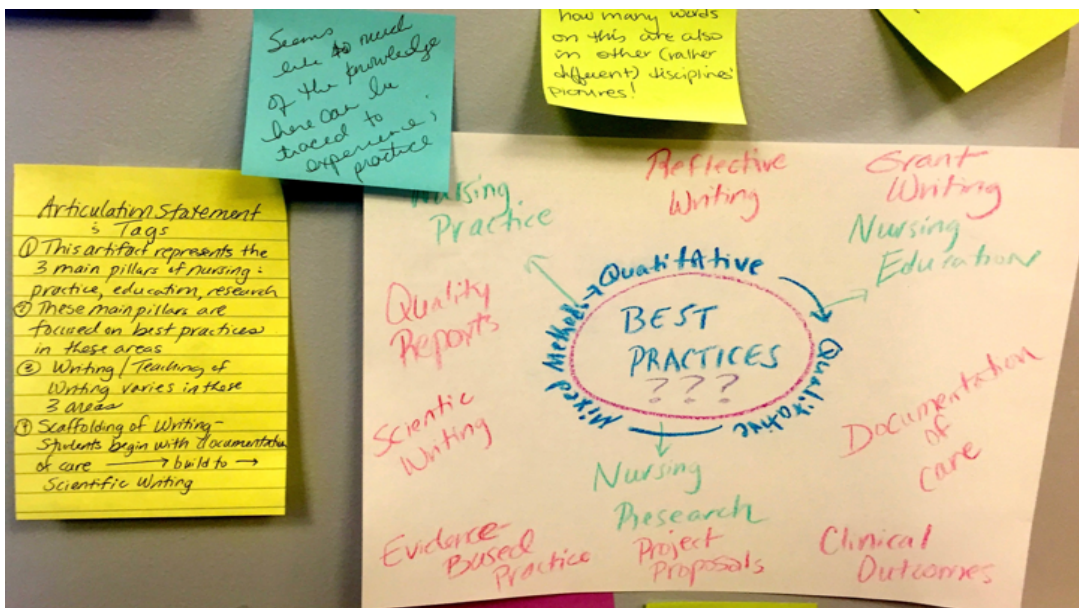 Seems
like so much
of the knowledge
here can be
traced to
experience;
practice
how many words
on this are also
in other (rather
different) disciplines'
pictures!
Articulation Statement
& Tags
① This artifact represents the
3 main pillars of nursing:
practice, education, research
② These main pillars are
focused on best practices
in these areas
③ Writing/Teaching of
Writing varies in these
3 areas
④ Scaffolding of Writing-
Students begin with documentation
of care → build to →
Scientific Writing
Nursing
Practice
Reflective
Writing
Grant
Writing
Nursing
Education
Quality
Reports
Mixed Methods → Quatitative
BEST
PRACTICES
???
Qualitative
Scientic
Writing
Documentation
of
care
Nursing
Research
Evidence-
Based
Practice
Project
Proposals
Clinical
Outcomes